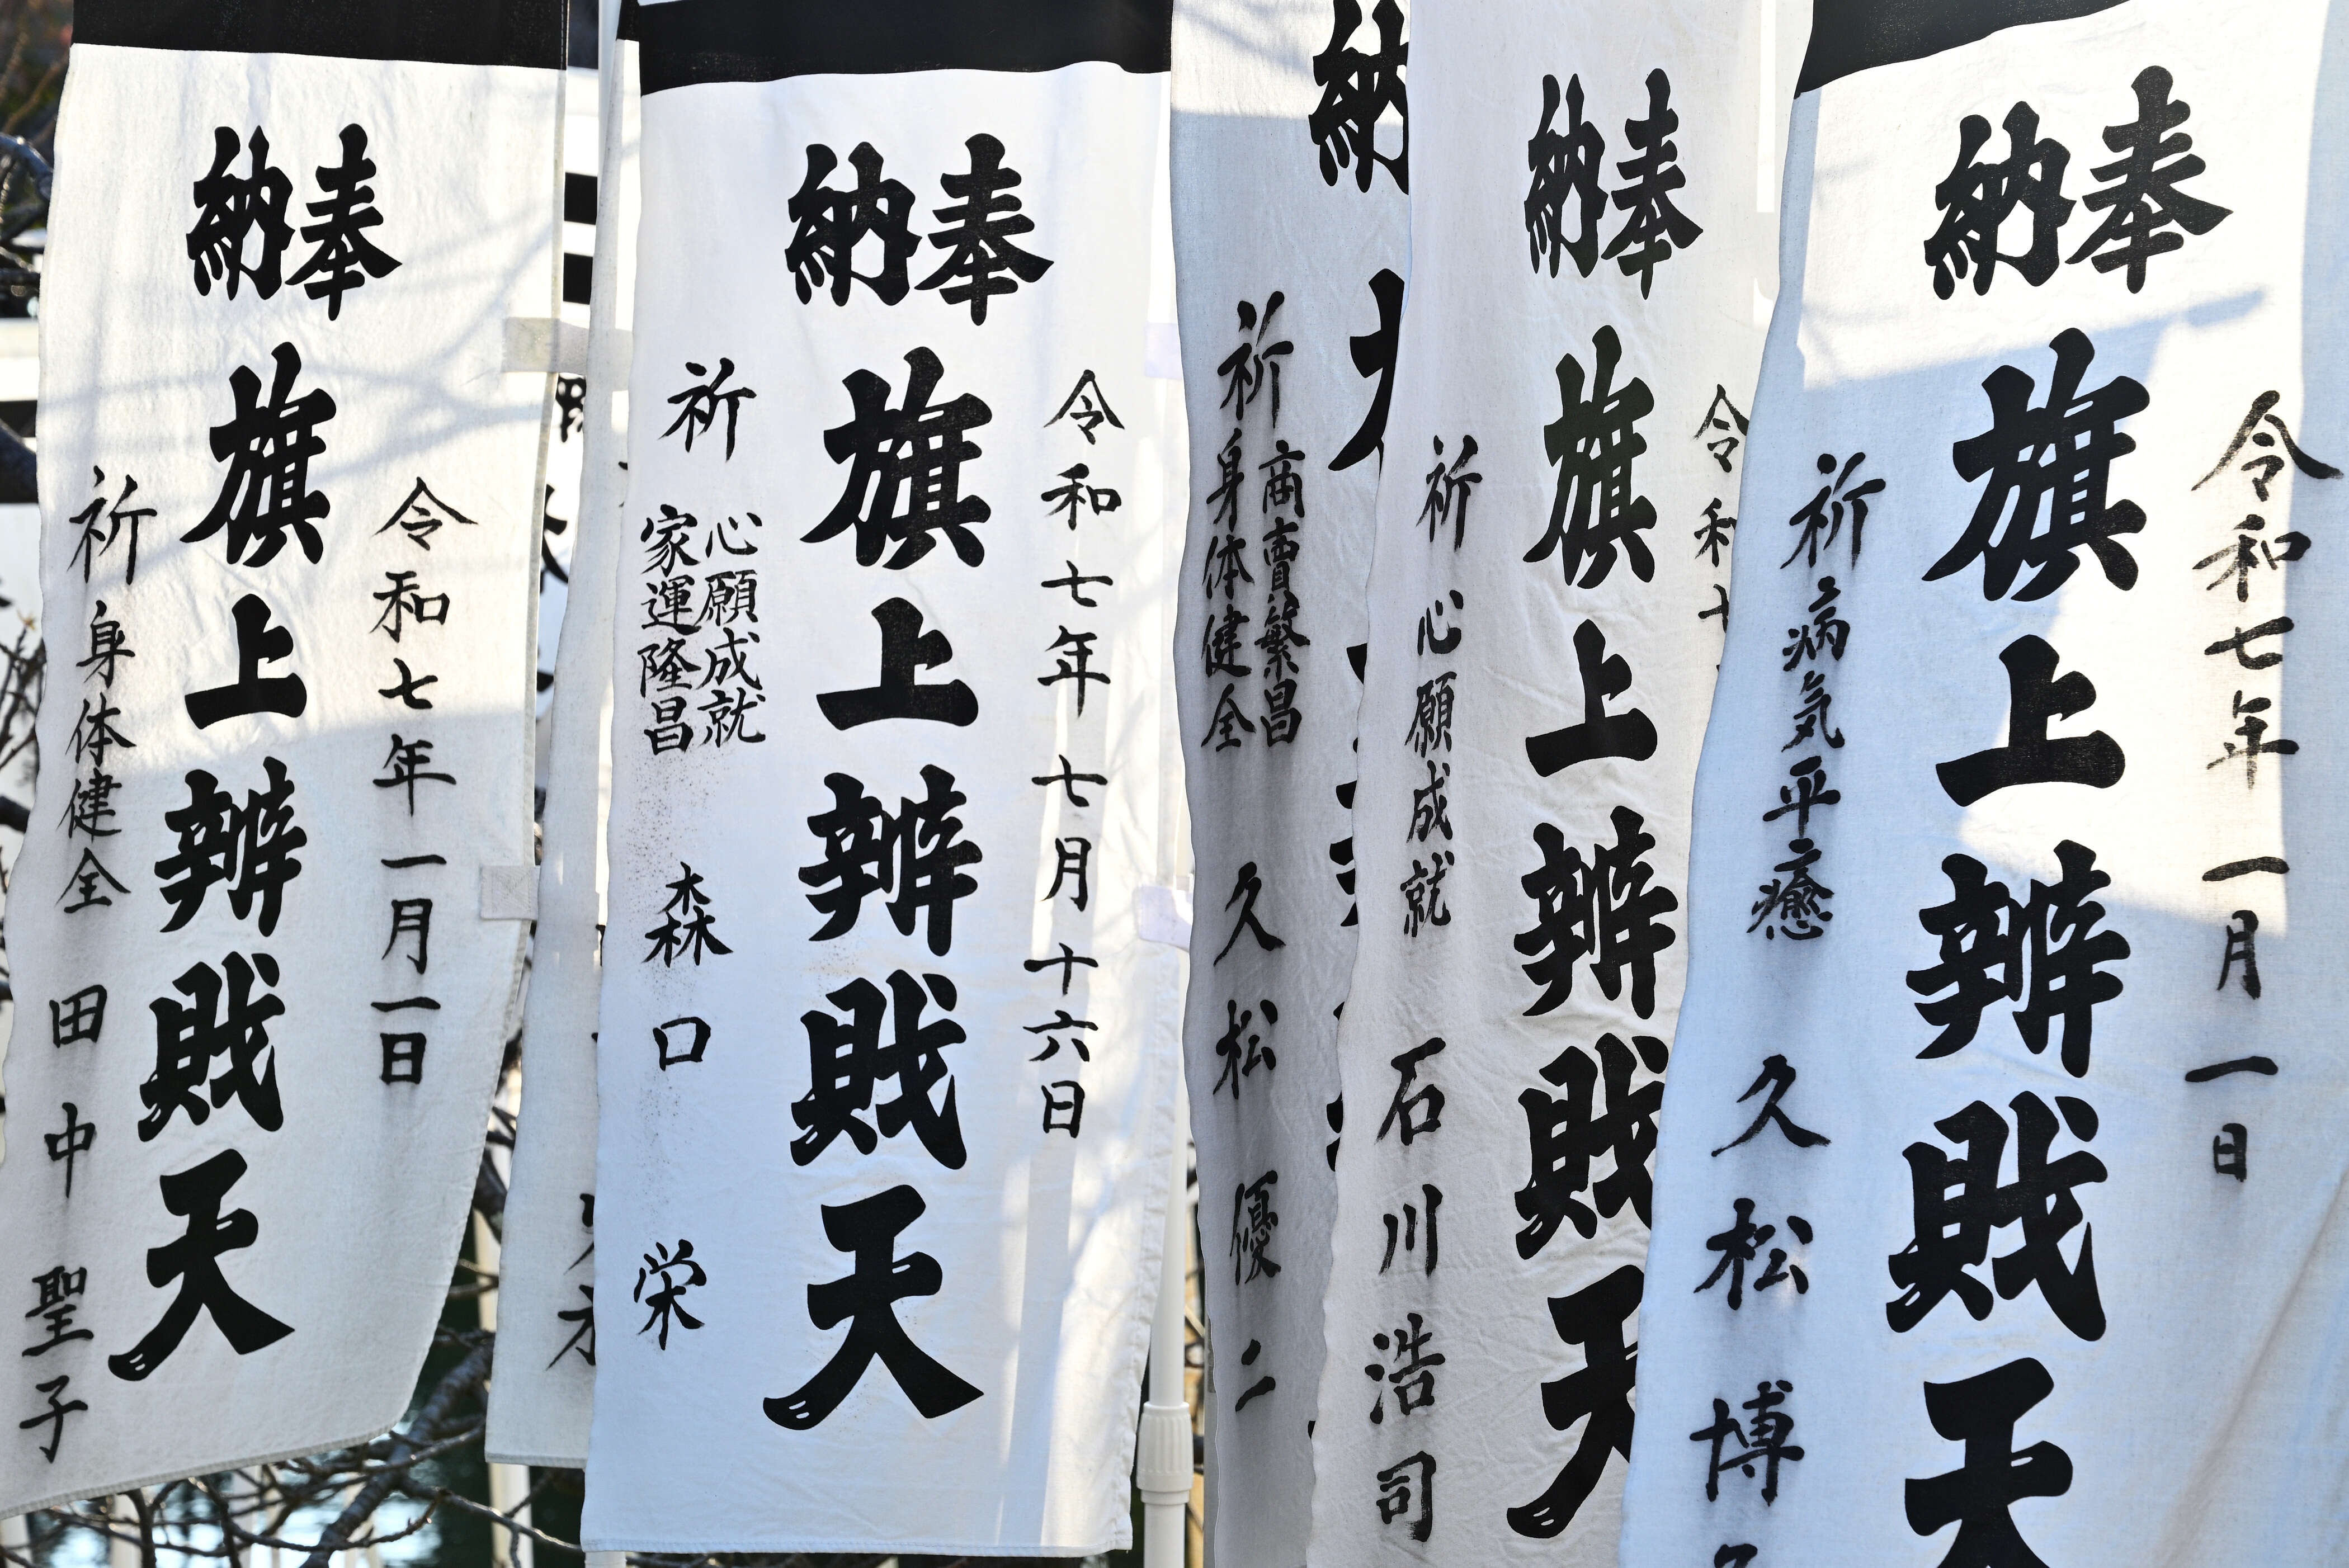 奉納
旗上辨財天
令和七年一月一日
祈
身体健全
田中聖子
奉納
旗上辨財天
令和七年七月十六日
祈
心願成就
家運隆昌
森口
栄
納
祈
商賣繁昌
身体健全
久松優二
奉納
旗上辨財天
令和七
祈
心願成就
石川浩司
奉納
旗上辨財天
令和七年一月一日
祈
病気平癒
久松博